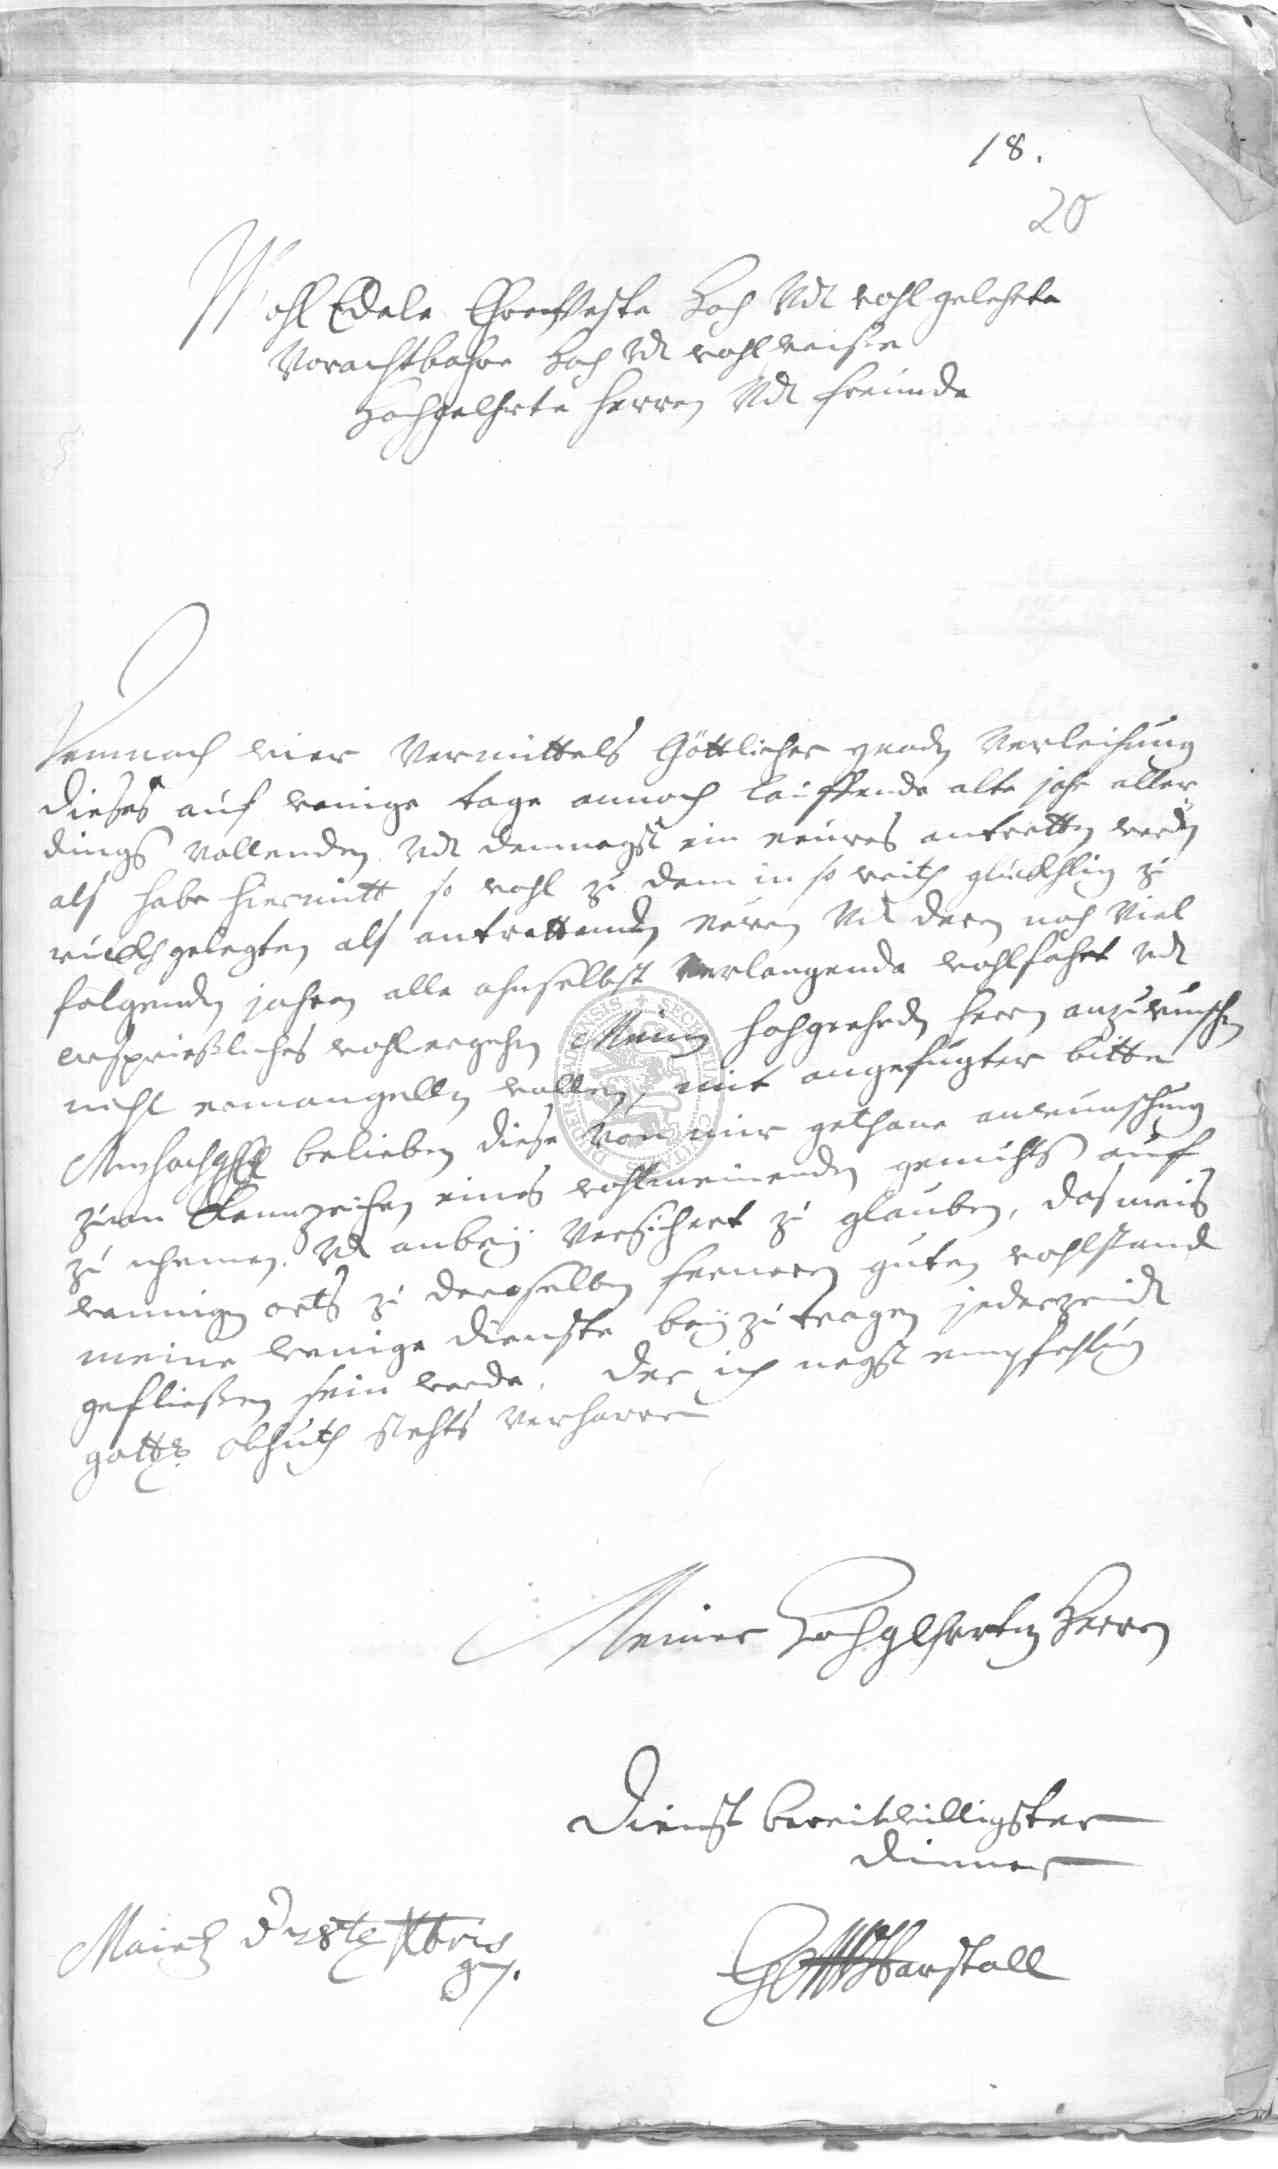 18.
20
Wohl Edele Ehrenveste Hoch Vndt wohl gelehrte
Vorachtbahre Hoch Vndt wohlweise
Hochgelehrte Herren Vndt freunde
Demnach wier Vermittels Göttlicher gnaden Verleihung
dieses auf wenige tage annoch lauffende alte jahr aller
dings Vollenden Vndt demnegst ein neuwes antretten werden
als habe hiermitt so wohl zu dem in so weith glücklig zu
rückh gelegten als antrettenden neuen Vndt deren noch Viel
folgenden jahren alle ahnselbst Verlangende wohlfahrt Vndt
ersprießliches wohlergehen Meinen hochgeehrden Herrn anzuwünschen
nicht ermanglen wollen, mit angefügter bitte
belieben diese Von mir gethane anwünschung
zum Kennzeichen eines wohlmeinenden gemüths auf
zu nhemen. Vndt anbey Versichert zu glauben, das meis
wenigen orts zu deroselben ferneren guten wohlstandt
meine wenige dienste bey zu tragen jederzeidt
gefließen sein werde. Der ich negst empfehlung
gottes obhuth stehts Verharre
Meiner Hochgelehrten Herren
Dienst bereitwilligster
diener
Maintz d 28te Xbris
97.
Harstall